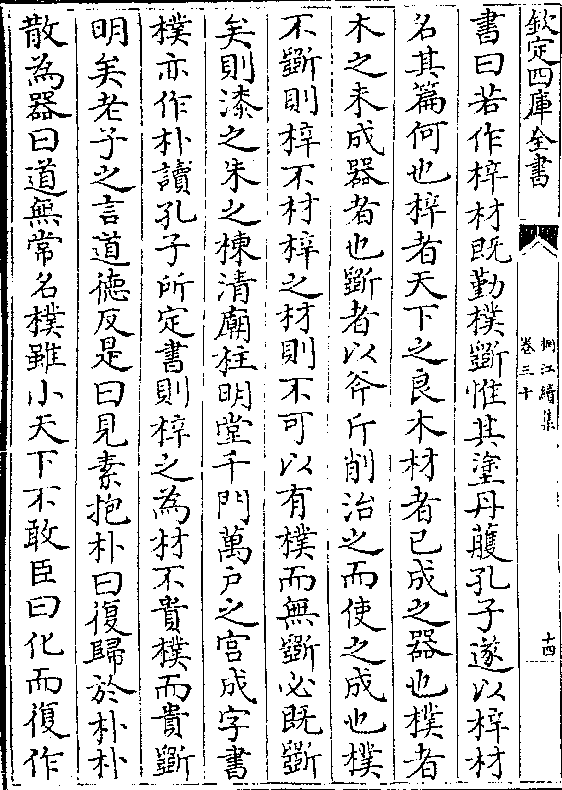 欽定四庫全書
桐江續集
卷三十
十四
書曰若作梓材既勤樸斵惟其塗丹雘孔子遂以梓材
名其篇何也梓者天下之良木材者已成之器也樸者
木之未成器者也斵者以斧斤削治之而使之成也樸
不斵則梓不材梓之材則不可以有樸而無斵必既斵
矣則漆之朱之棟清廟柱明堂千門萬户之宫成字書
樸亦作朴讀孔子所定書則梓之為材不貴樸而貴斵
明矣老子之言道徳反是曰見素抱朴曰復歸於朴朴
散為器曰道無常名樸雖小天下不敢臣曰化而復作